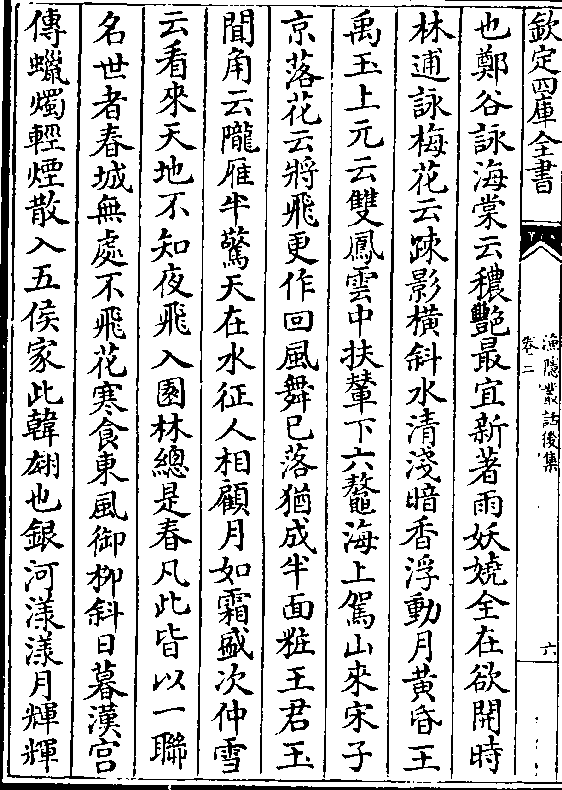 欽定四庫全書
漁隱叢話後集
卷二
六
也鄭谷詠海棠云穠艷最宜新著雨妖嬈全在欲開時
林逋詠梅花云疎影橫斜水清淺暗香浮動月黃昏王
禹玉上元云雙鳳雲中扶輦下六鼇海上駕山來宋子
京落花云將飛更作回風舞已落猶成半面粧王君玉
聞角云隴雁半驚天在水征人相顧月如霜盛次仲雪
云看來天地不知夜飛入園林總是春凡此皆以一聯
名世者春城無處不飛花寒食東風御栁斜日暮漢宫
傳蠟燭輕煙散入五侯家此韓翃也銀河漾漾月輝輝